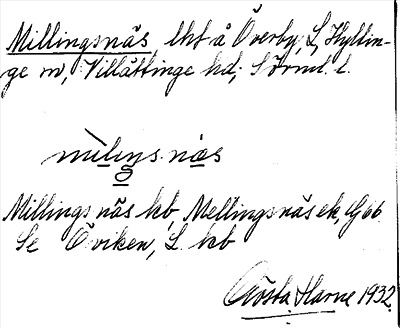 Millingsnäs, lht å Överby, L, Hyltin-
ge sn, Villåttinge hd, Sörml. l.
mìlıŋs nä̱s
Millingsnäs kb, Mellingsnäs ek, G66
Se Öviken, L kb
Gösta Harne 1932.